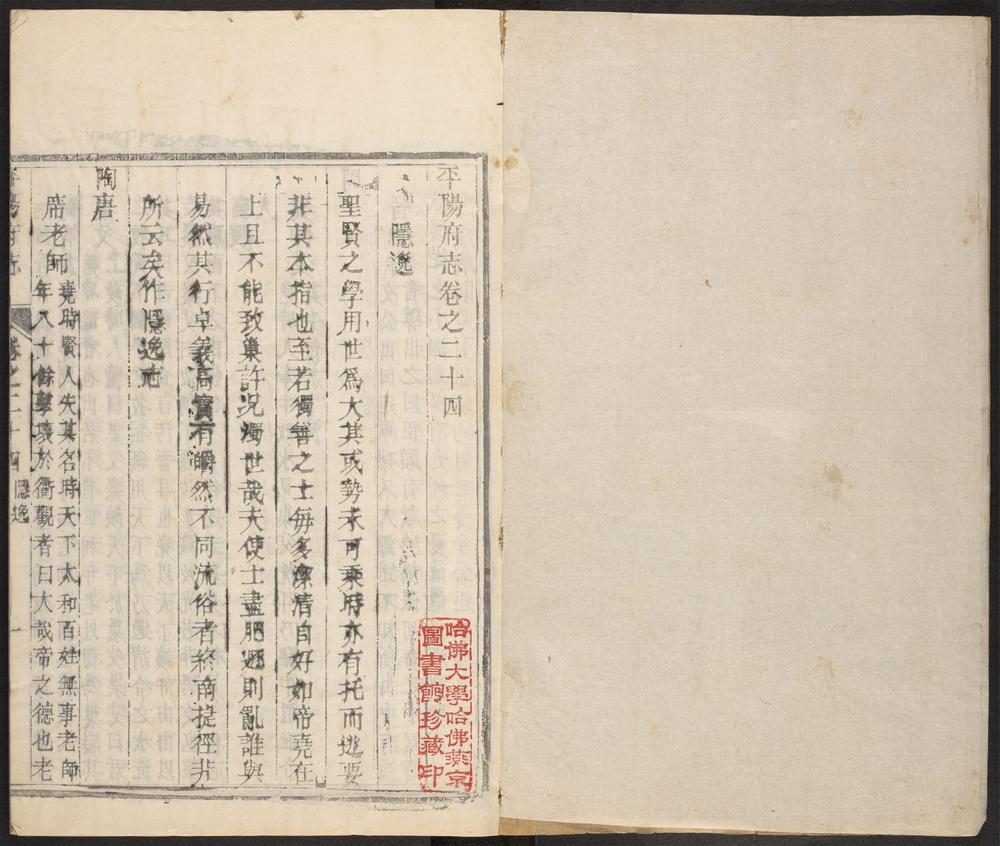 平陽府志卷之二十四
隱逸
聖賢之學用世爲大其或勢未可乘時亦有托而逃要
非其本指也至若獨善之士每多潔清自好如帝堯在
上且不能致巢許況濁世哉夫使士盡肥遯則亂誰與
易然其行卓義高實有皭然不同流俗者終南捷徑非
所云矣作隱逸志
陶唐
席老師
堯時賢人失其名時天下太和百姓無事老師
年八十餘擊壤於衢觀者曰大哉帝之德也老
平陽府志
卷之二十四
隱逸
一
哈佛大學哈佛燕京
圖書館珍藏印